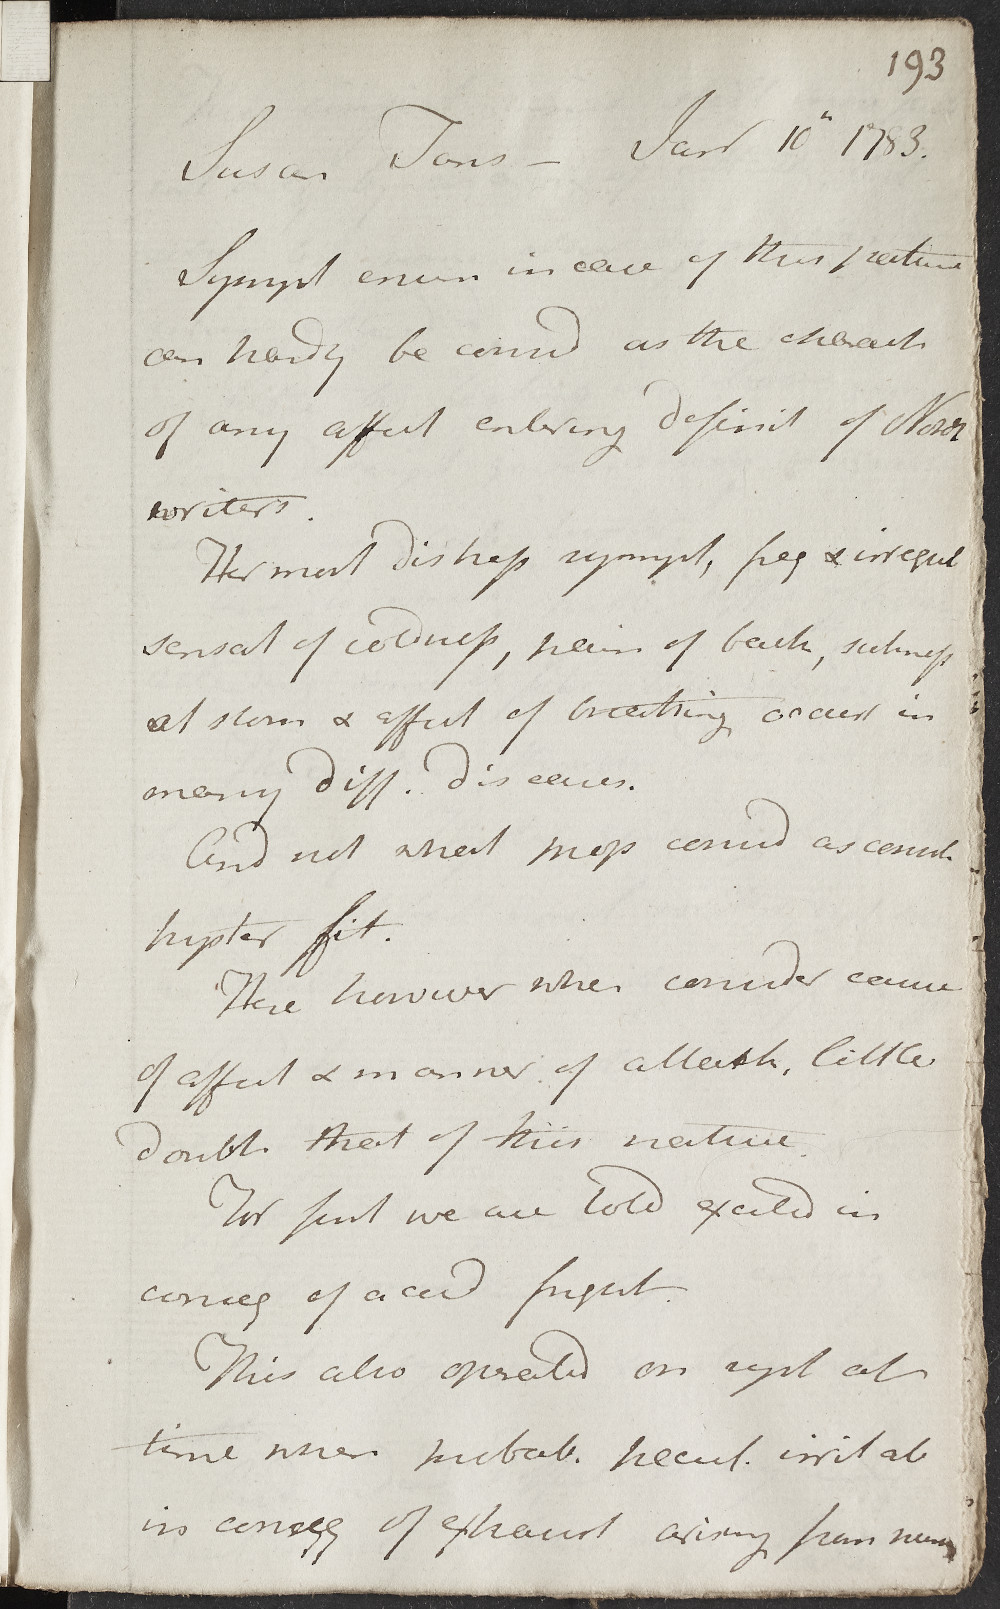 193
Susan Tons - Janr 10th 1783.
Sympt enum in case of this nature
can hardly be considd as the charact
of any affect entering definit of Nosol
writers.
Her most distress sympt, freq & irregul
sensat of coldness, pain of back, sickness
at stom & affect of breathing occur in
many diff. diseases.
And not what most considd as const
hyster fit.
Here however when consider cause
of affect & manner of attack, little
doubt that of this nature.
For first we are told excited in
conseq of a cold fright.
This also operated on syst at
time when probab. pecul. irritab
in conseq of exhaust arising from nurs